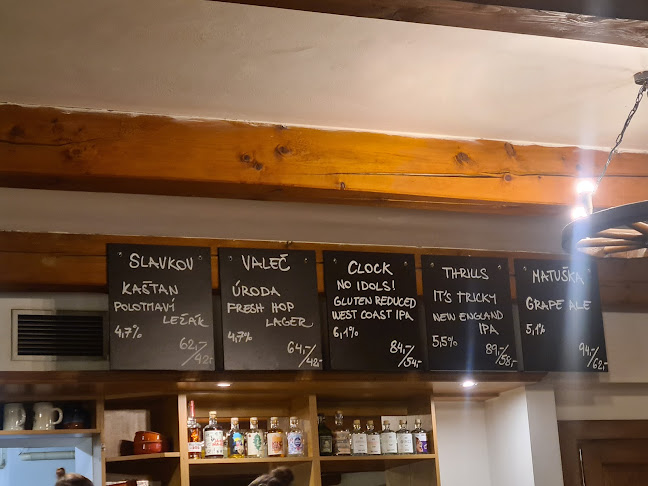 SLAVKOV
KAŠTAN
POLOTMAVÝ
LEŽÁK
4,7%
62,-/42,-
VALEČ
ÚRODA
FRESH HOP
LAGER
4,7%
64,-/42,-
CLOCK
NO IDOLS!
GLUTEN REDUCED
WEST COAST IPA
6,1%
84,-/54,-
THRILLS
IT'S TRICKY
NEW ENGLAND
IPA
5,5%
89,-/58,-
MATUŠKA
GRAPE ALE
5,1%
94,-/62,-